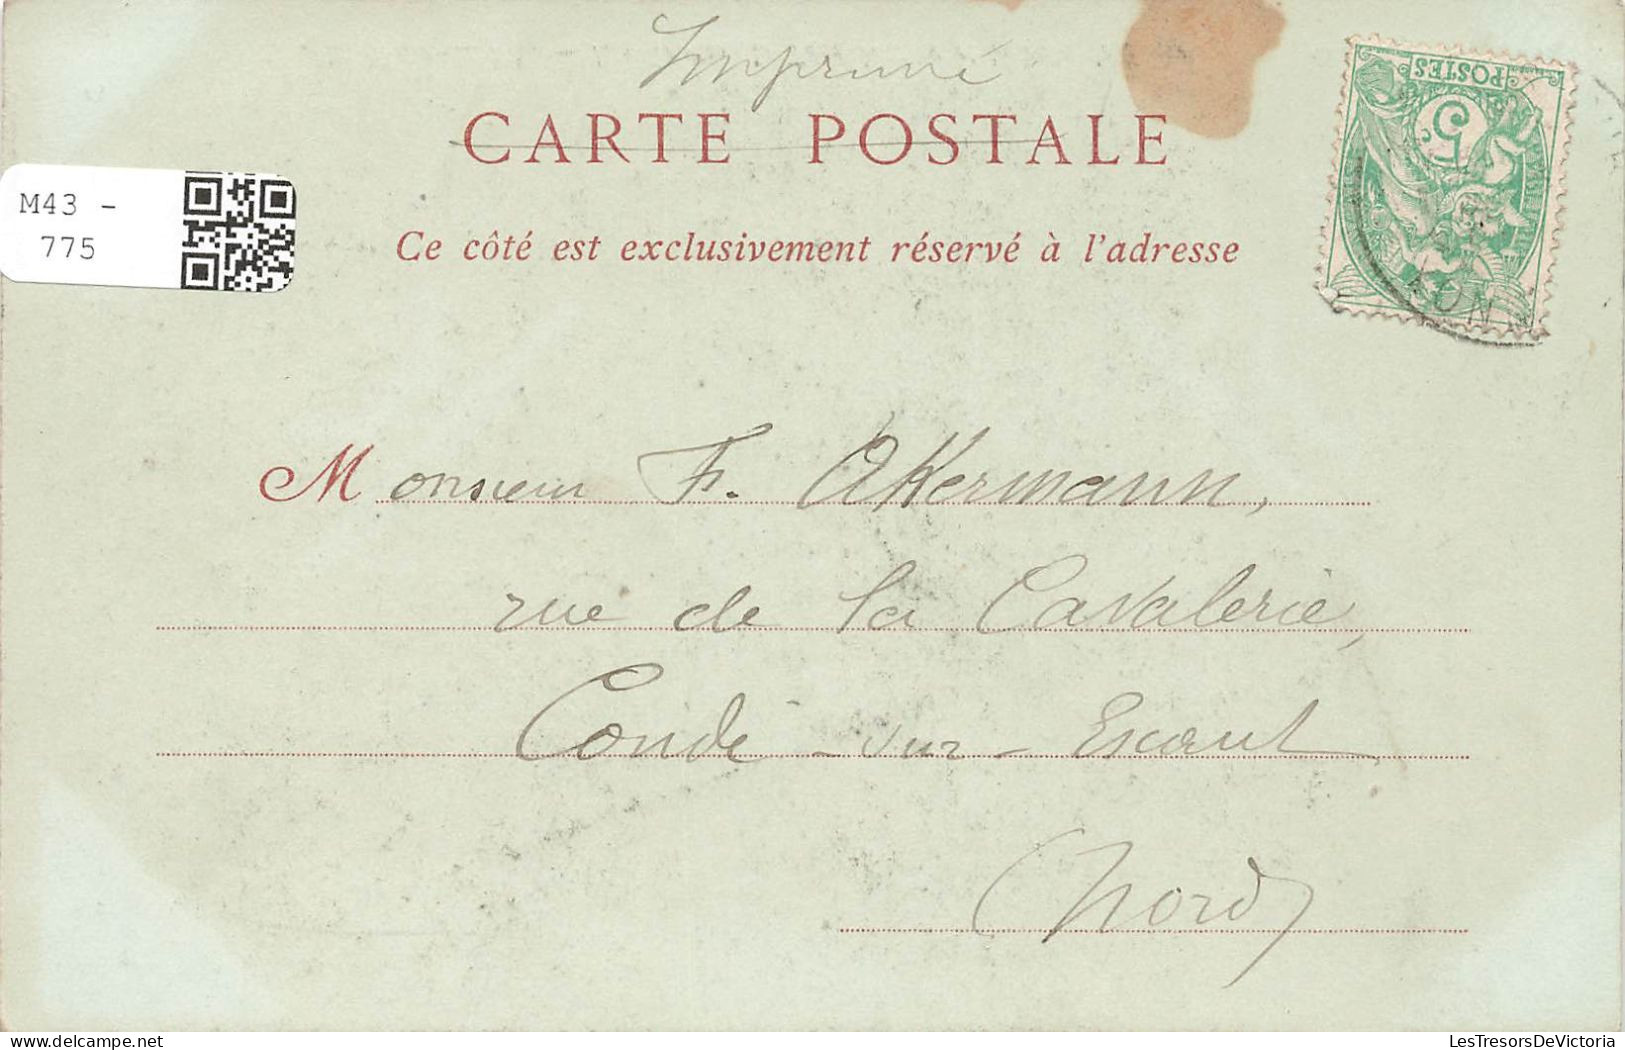 Imprimé
CARTE POSTALE
POSTES
5
M43 -
775
Ce côté est exclusivement réservé à l'adresse
Monsieur F. Akermann,
rue de la Cavalerie,
Condé-sur-Escaut
(Nord)
LesTresorsDeVictoria